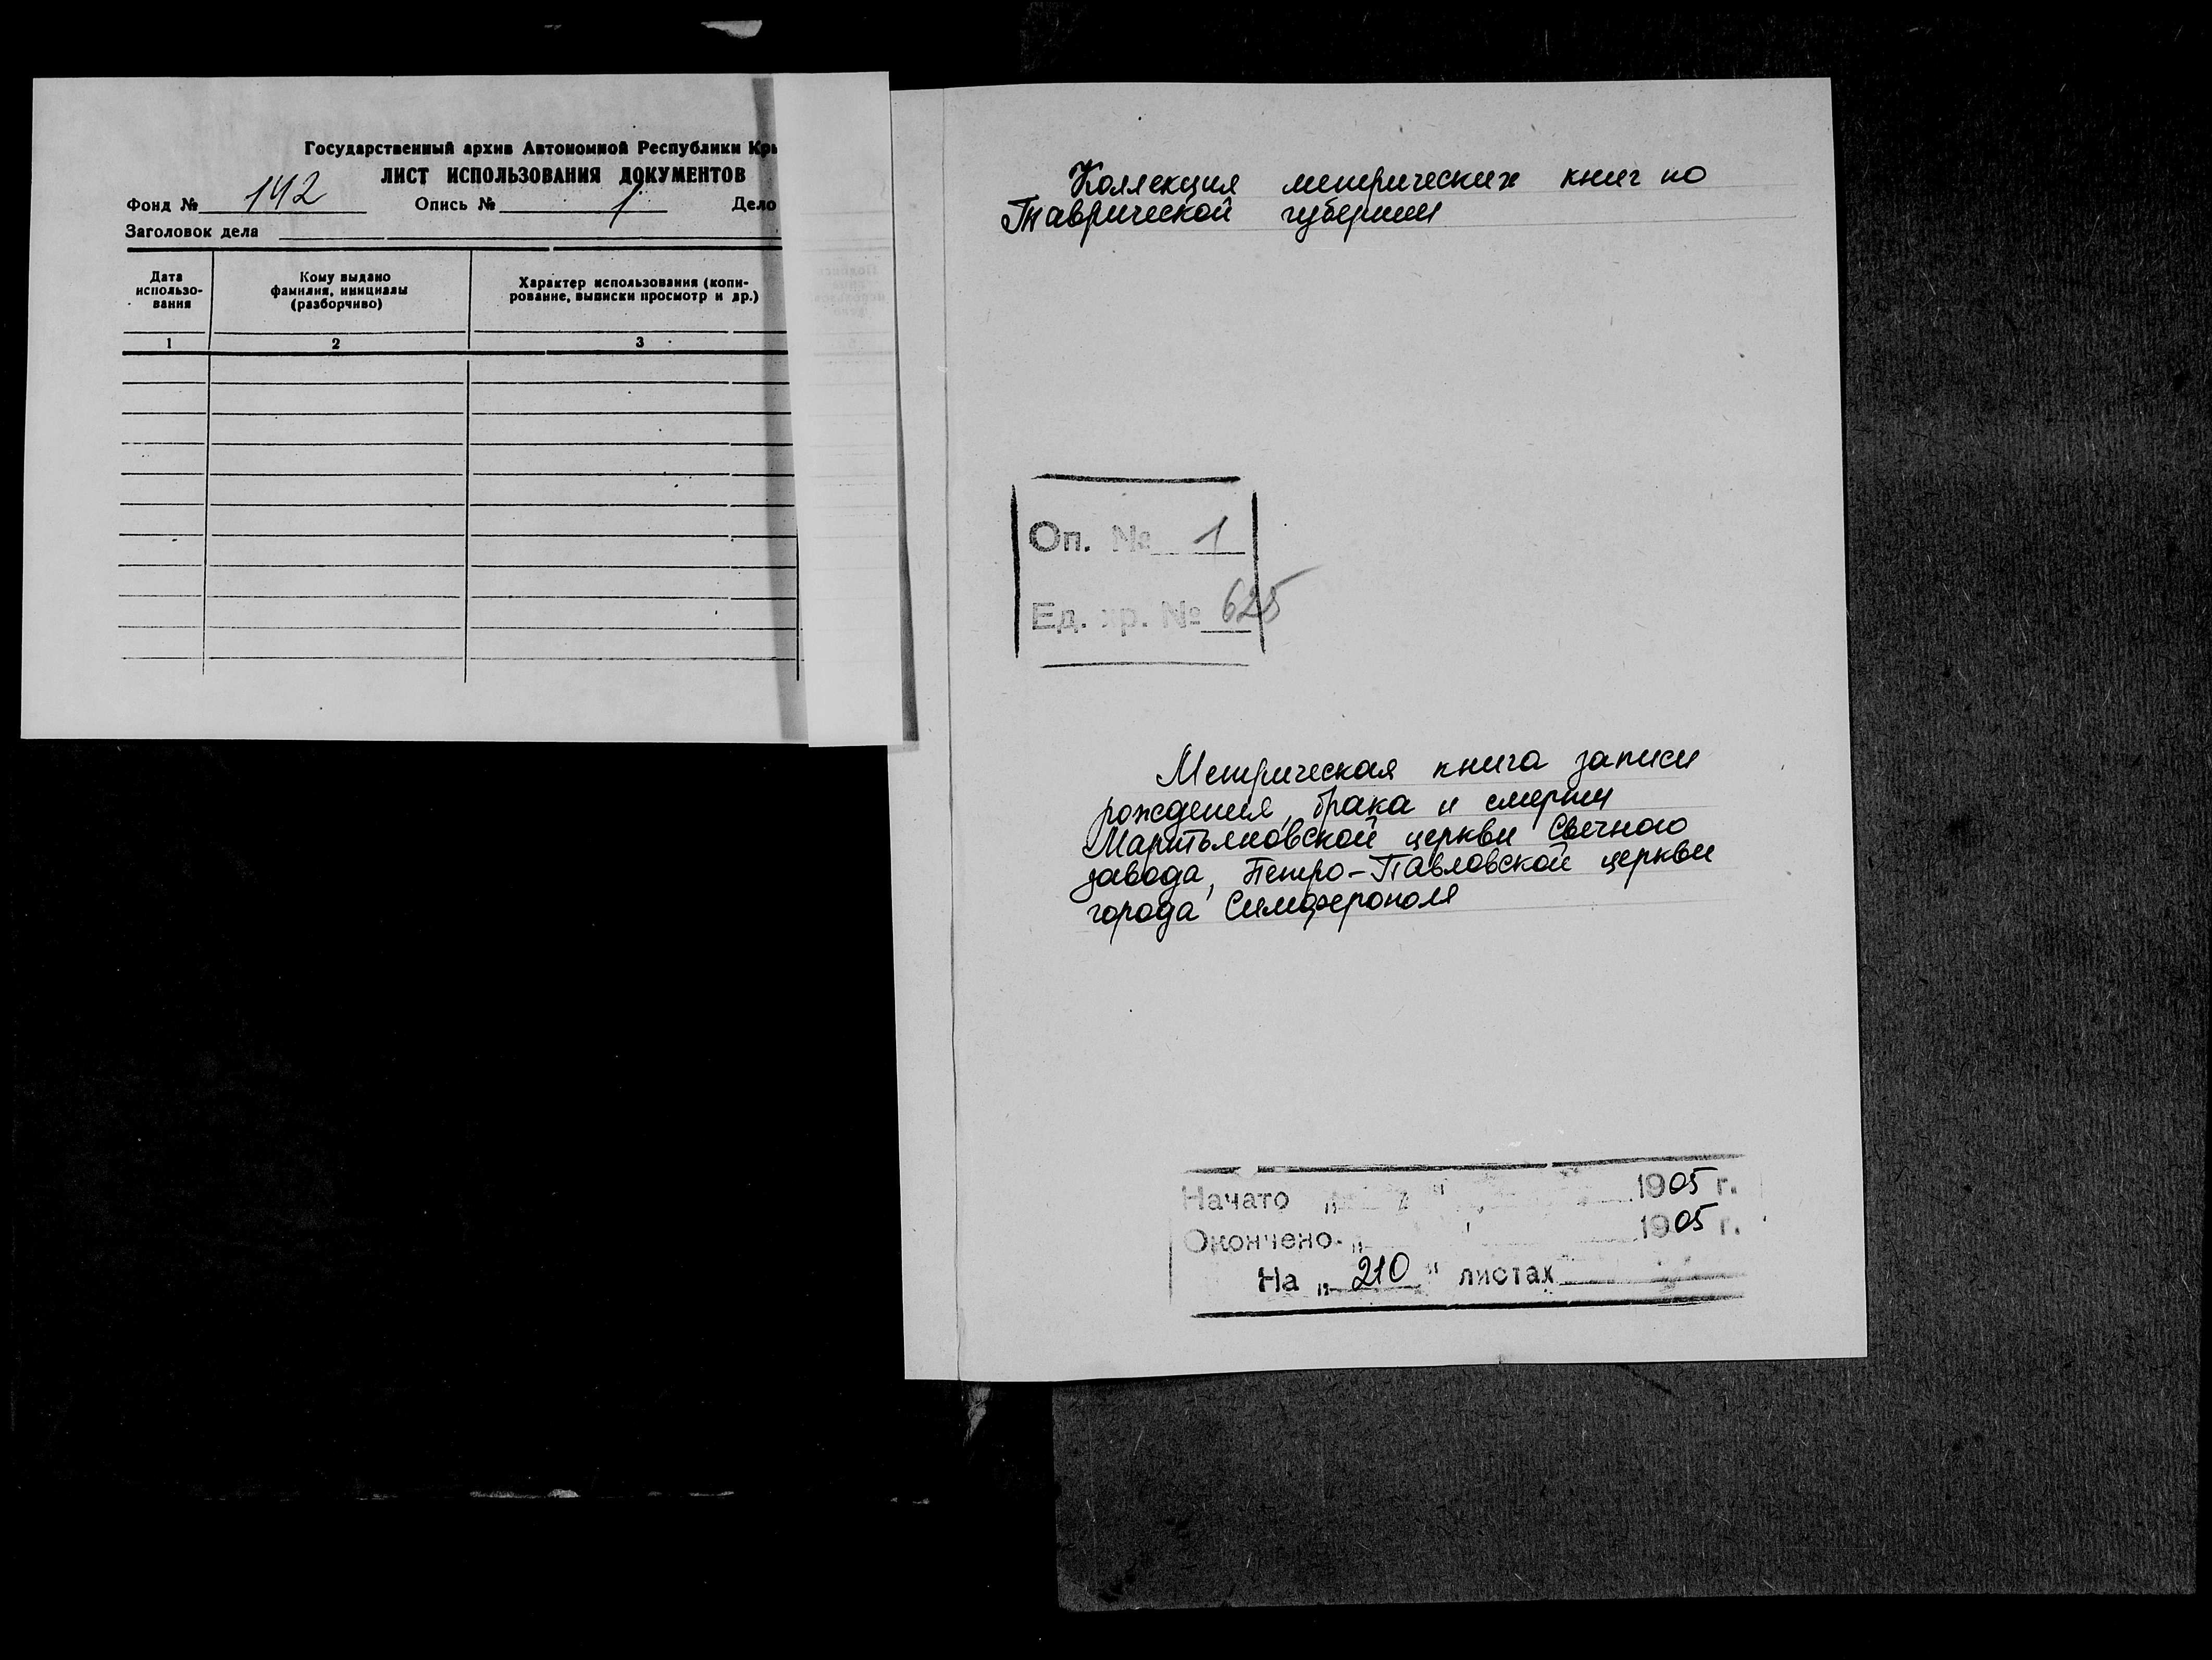 Государственный архив Автономной Республики Кры
ЛИСТ ИСПОЛЬЗОВАНИЯ ДОКУМЕНТОВ
Фонд № 142 Опись № 1 Дело
Заголовок дела
Дата использо-вания
Кому выдано фамилия, инициалы (разборчиво)
Характер использования (копи-рование, выписки просмотр и др.)
1 2 3
Коллекция метрических книг по
Таврической губернии
Оп. № 1
Ед. хр. № 625
Метрическая книга записи
рождения, брака и смерти
Мартьяновской церкви Свечного
завода, Петро-Павловской церкви
города Симферополя
Начато " " 1905 г.
Окончено " 1905 г.
На „ 210 " листах